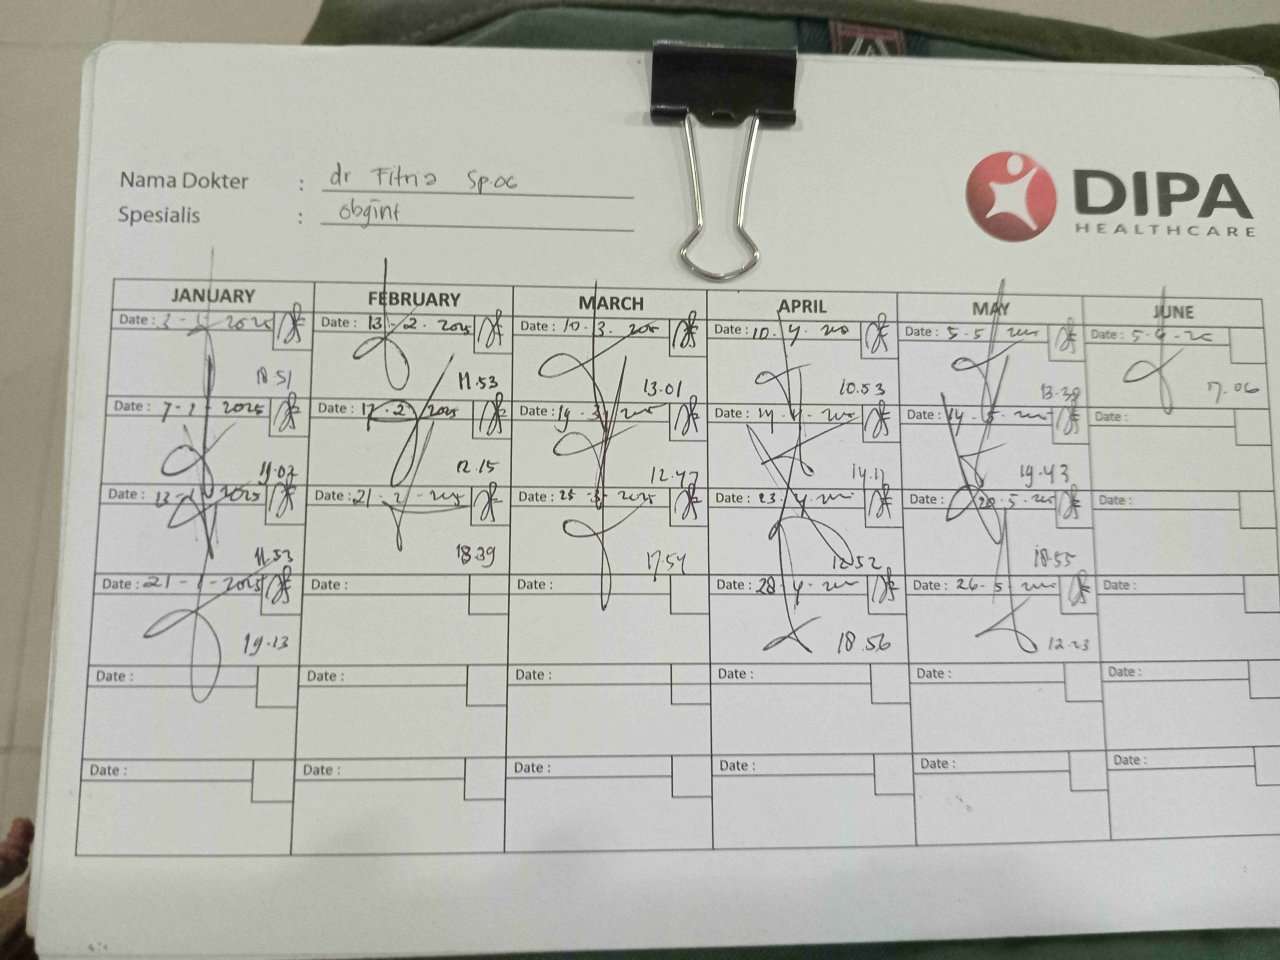 Nama Dokter : dr Fitria Sp.OG
Spesialis : obgint
DIPA
HEALTHCARE
JANUARY FEBRUARY MARCH APRIL MAY JUNE
Date : 2025 Date : 13-2-2025 Date : 10-3- Date : 10-4- Date : 5-5 Date : 5-
18.51 11.53 13.01 10.53 13.38 17.06
Date : 7-1-2025 Date : 17-2-2025 Date : 19-3- Date : 14-4- Date : 14-5- Date :
19.02 12.15 12.47 14.11 19.43
Date : 13-1-2025 Date : 21-2- Date : 25-3-2025 Date : 23-4- Date : 20-5- Date :
11.53 18.39 17.54 18.55
Date : 21-1-2025 Date : Date : Date : 28-4- Date : 26-5 Date :
19.13 18.56 12.23
Date : Date : Date : Date : Date : Date :
Date : Date : Date : Date : Date : Date :